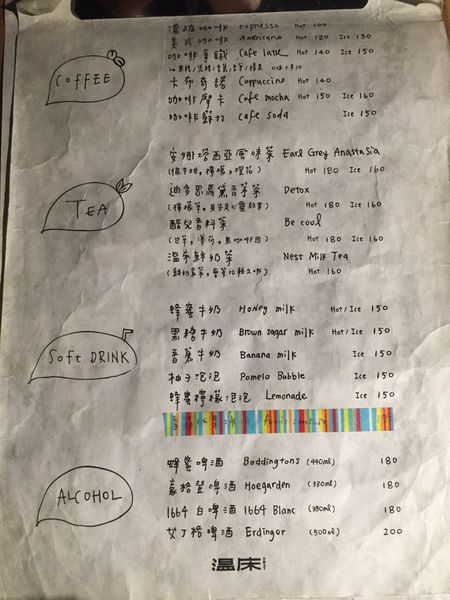 濃縮咖啡 Espresso Hot 100
美式咖啡 Americano Hot 120 Ice 130
咖啡拿鐵 Cafe latte Hot 140 Ice 150
卡布奇諾 Cuppuccino Hot 140
咖啡摩卡 Cafe mocha Hot 150 Ice 160
咖啡蘇打 Cafe soda Ice 150
COFFEE
安娜塔西亞風味茶 Earl Grey Anastasia
Hot 180 Ice 160
迪多思馬黛香茅茶 Detox
Hot 180 Ice 160
TEA
酷兒香料茶 Be cool
Hot 180 Ice 160
溫床鮮奶茶 Nest Milk Tea
Hot 160
蜂蜜牛奶 Honey milk Hot/Ice 150
黑糖牛奶 Brown sugar milk Hot/Ice 150
Soft DRINK
香蕉牛奶 Banana milk Ice 150
柚子泡泡 Pomelo Bubble Ice 150
蜂蜜檸檬泡泡 Lemonade Ice 150
蜂蜜啤酒 Boddingtons (440ml) 180
豪格登啤酒 Hoegarden (330ml) 180
ALCOHOL
1664白啤酒 1664 Blanc (330ml) 180
艾丁格啤酒 Erdinger (500ml) 200
溫床